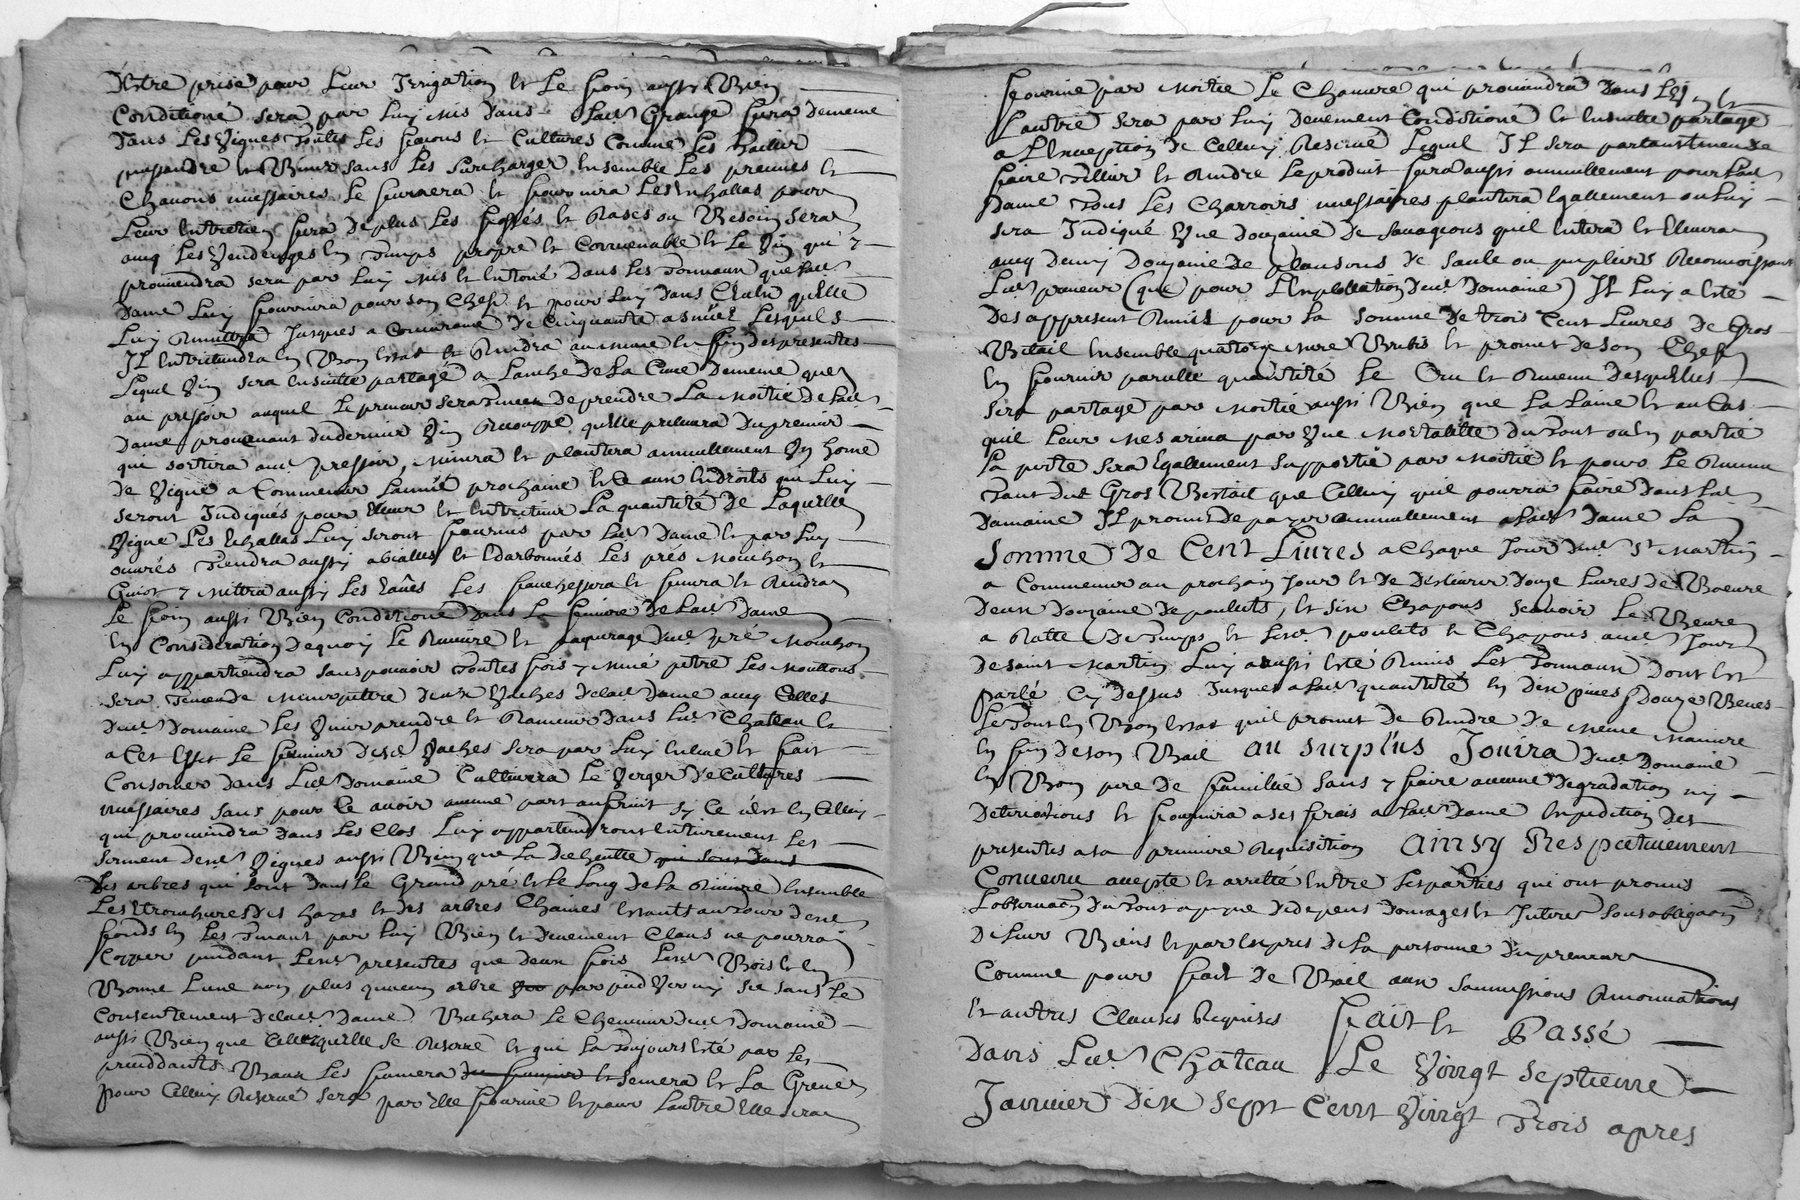 D'estre prise pour Leur Irrigation et Le foin aussy Bien
Conditioné sera par Luy mis dans lad Grange fera demême
Dans Les Vignes toutes Les façons et Cultures Comme Les
prendre et Biner sans Les Surcharger Ensemble Les preuues et
Chauons necessaires Le fumera et fournira Les Echallas pour
Leur Entretien fera deplus Les fossés et Rases ou Besoin Sera
auq Les Vendenges En Temps propre et Conuenable et Le Vin qui y
prouiendra sera par Luy mis et Entoné Dans Les Tonnaux que Lad
Dame Luy fournira pour son Chef et pour Luy dans Ceux quelle
Luy Remettra Jusques a Concurance De Cinquante asnées Lesquels
Il Entretiendra En Bon Estat et Rendra au meme En fin des presentes
Lequel Vin sera Ensuitte partagé a Lanche De La Cuue Demême que
au pressoir auquel Le preneur sera De prendre La moitié De Lad
Dame prouenant du dernier Vin quelle prelevera Du premier
qui sortira aud pressoir, minera et plantera annuellement Un home
de Vigne a Commencer L'année prochaine Et aux Endroits qui Luy
seront Indiqués pour Eleuer et Entretenir La quantité De Laquelle
Vigne Les Echallas Luy seront fournis par Lad Dame et par Luy
ouurés Tiendra aussy abiallés et Darbonnés Les prés mouchon et
Guiot y mettra aussy Les Eaües Les fauchera et fenera et Rendra
Le foin aussy Bien Conditioné Dans Le feniere De Lad Dame
En Consideration De quoy Le Reuiure et paquerage Dud pré mouchon
Luy appartiendra sans pouuoir Toutes fois y mener pétre Les mouttons
sera Tenu de mener pétre deux Vaches de lad Dame auq Celles
Dud Domaine Les Venir prendre et Ramener Dans Led Chateau et
a Cet Effet Le fumier Desd Vaches sera par Luy Enleué et fait
Consomer Dans Led Domaine Cultiuera Le Verger De Cultures
necessaires sans pour Ce auoir aucune part au fruit sy Ce n'est En Celluy
qui prouiendra Dans Les Clos Luy appartiendront Entierement Les
serment desd Vignes aussy Bien que La
Des arbres qui sont Dans Le Grand pré Et Le Long De La Riuiere Ensemble
Les Etronchures Des hayes et des arbres Chaines Estants au Tour Desd
fonds En Les Tenant par Luy Bien et Deuement Claus ne pourra
Copper pendant Lesd presentes que Deux fois Lesd Bois Et En
Bonne Lune non plus quaucun arbre par pied Vif ny Sec sans Le
Consentement De lad Dame Bechera Le Cheneuier Dud Domaine
aussy Bien que Celluy quelle Se Reserve et qui La Toujours Esté par Les
precedants Baux Les fumera et Semera et La Graine
pour Celluy Reserué Sera par Elle fournie Et pour Lautre Elle sera
fournie par moitié Le Chanvre qui prouiendra Dans L'Un et
Lautre Sera par Luy Deuement Conditioné et Ensuitte partagé
a L'Exception De Celluy Reserué Lequel Il Sera partant tenu de
faire Tillier et Rendre Le produit fera aussy annuellement pour Lad
Dame Tous Les Charrois necessaires plantera Egallement ou Luy
sera Indiqué Une Douzaine De Sauageons quil Entera et Eleuera
auq Demy Douzaine De plansons De Saule ou pupliers Reconnoissant
Led preneur (que pour L'Exploitation Dud Domaine) Il Luy a Esté
Des appresent Remis pour La Somme De trois Cent Liures De Gros
Betail Ensemble quatorze mere Brebis et promet De Son Chef
En fournir pareille quantité Le Cru et Reuenu Desquelles
Sera partagé par moitié aussi Bien que La Laine Et au Cas
quil Leur mesariua par Une mortalitté Du Tout ou En partie
La perte Sera Egallement Supportée par moitié Et pour Le Reuenu
Tant dud Gros Bestail que Celluy quil pourra faire Dans Led
Domaine Il promet De payer annuellement a Lad Dame La
Somme De Cent Liures a Chaque Jour Dud St Martin
a Commencer au prochain Jour Et De Deliurer Douze Liures De Boeure
Deux Douzaine De poullets, et Six Chapons Scauoir Le Beure
a Ratte De Temps Et Lesd poulets et Chapons aud Jour
De Saint Martin Luy a aussi Esté Remis Les Tonnaux Dont Est
parlé Cy Dessus Jusques a Lad quantitté En Dix pieces Douze Benes
Le Tout En Bon Estat quil promet De Rendre De meme maniere
En fin De son Bail au surplus Jouira Dud Domaine
En Bon pere De famillie Sans y faire aucune Degradation ny
Deteriations Et fournira a Ses frais a Lad Dame Expedition Des
presentes a sa premiere Requisition ainsy Respectiuement
Conuenu accepté Et arretté Entre Les parties qui ont promis
Lobseruaon Du Tout a peyne De depens Domages Et Interes Sous obligaon
De Leur Biens Et par Expres De La personne Du preneur
Comme pour fait De Bail aux Soumissions Renonciations
Et autres Clauses Requises fait Et Passé
Dans Led Chateau Le Vingt Septieme
Januier Dix Sept Cent Vingt Trois apres